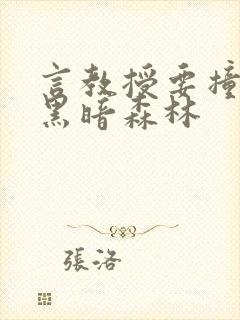 言教授要撞
黑暗森林
張洛